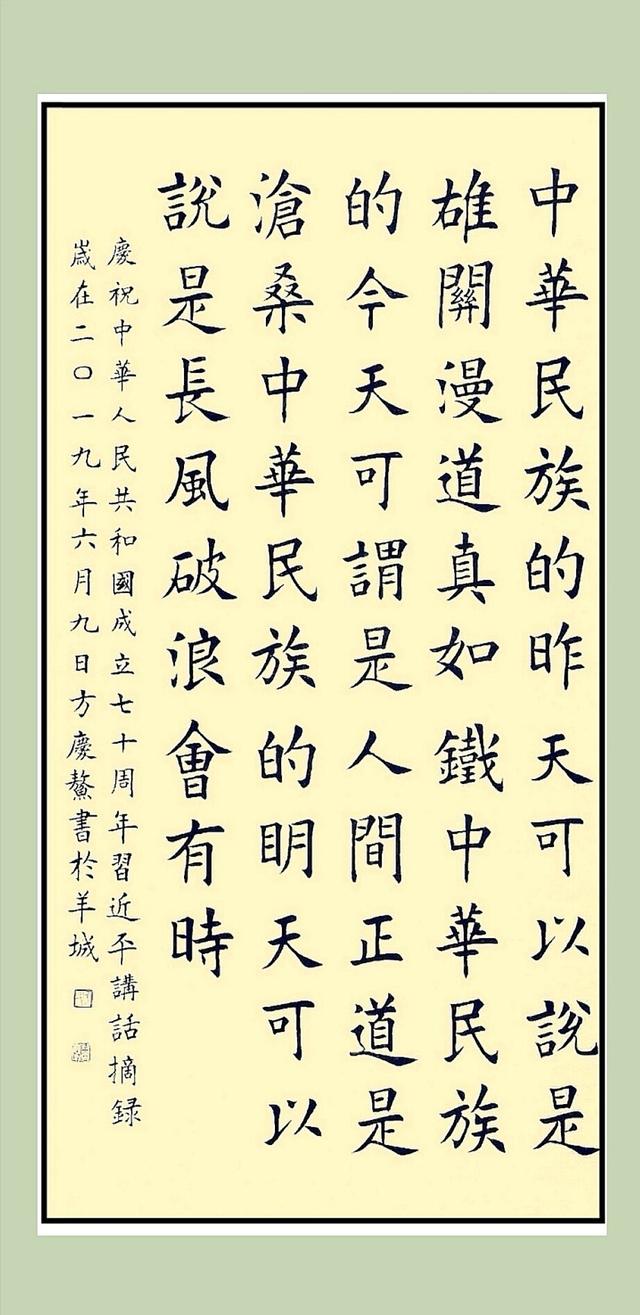 中華民族的昨天可以說是
雄關漫道真如鐵中華民族
的今天可謂是人間正道是
滄桑中華民族的明天可以
說是長風破浪會有時
慶祝中華人民共和國成立七十周年習近平講話摘録
歲在二〇一九年六月九日方慶鰲書於羊城